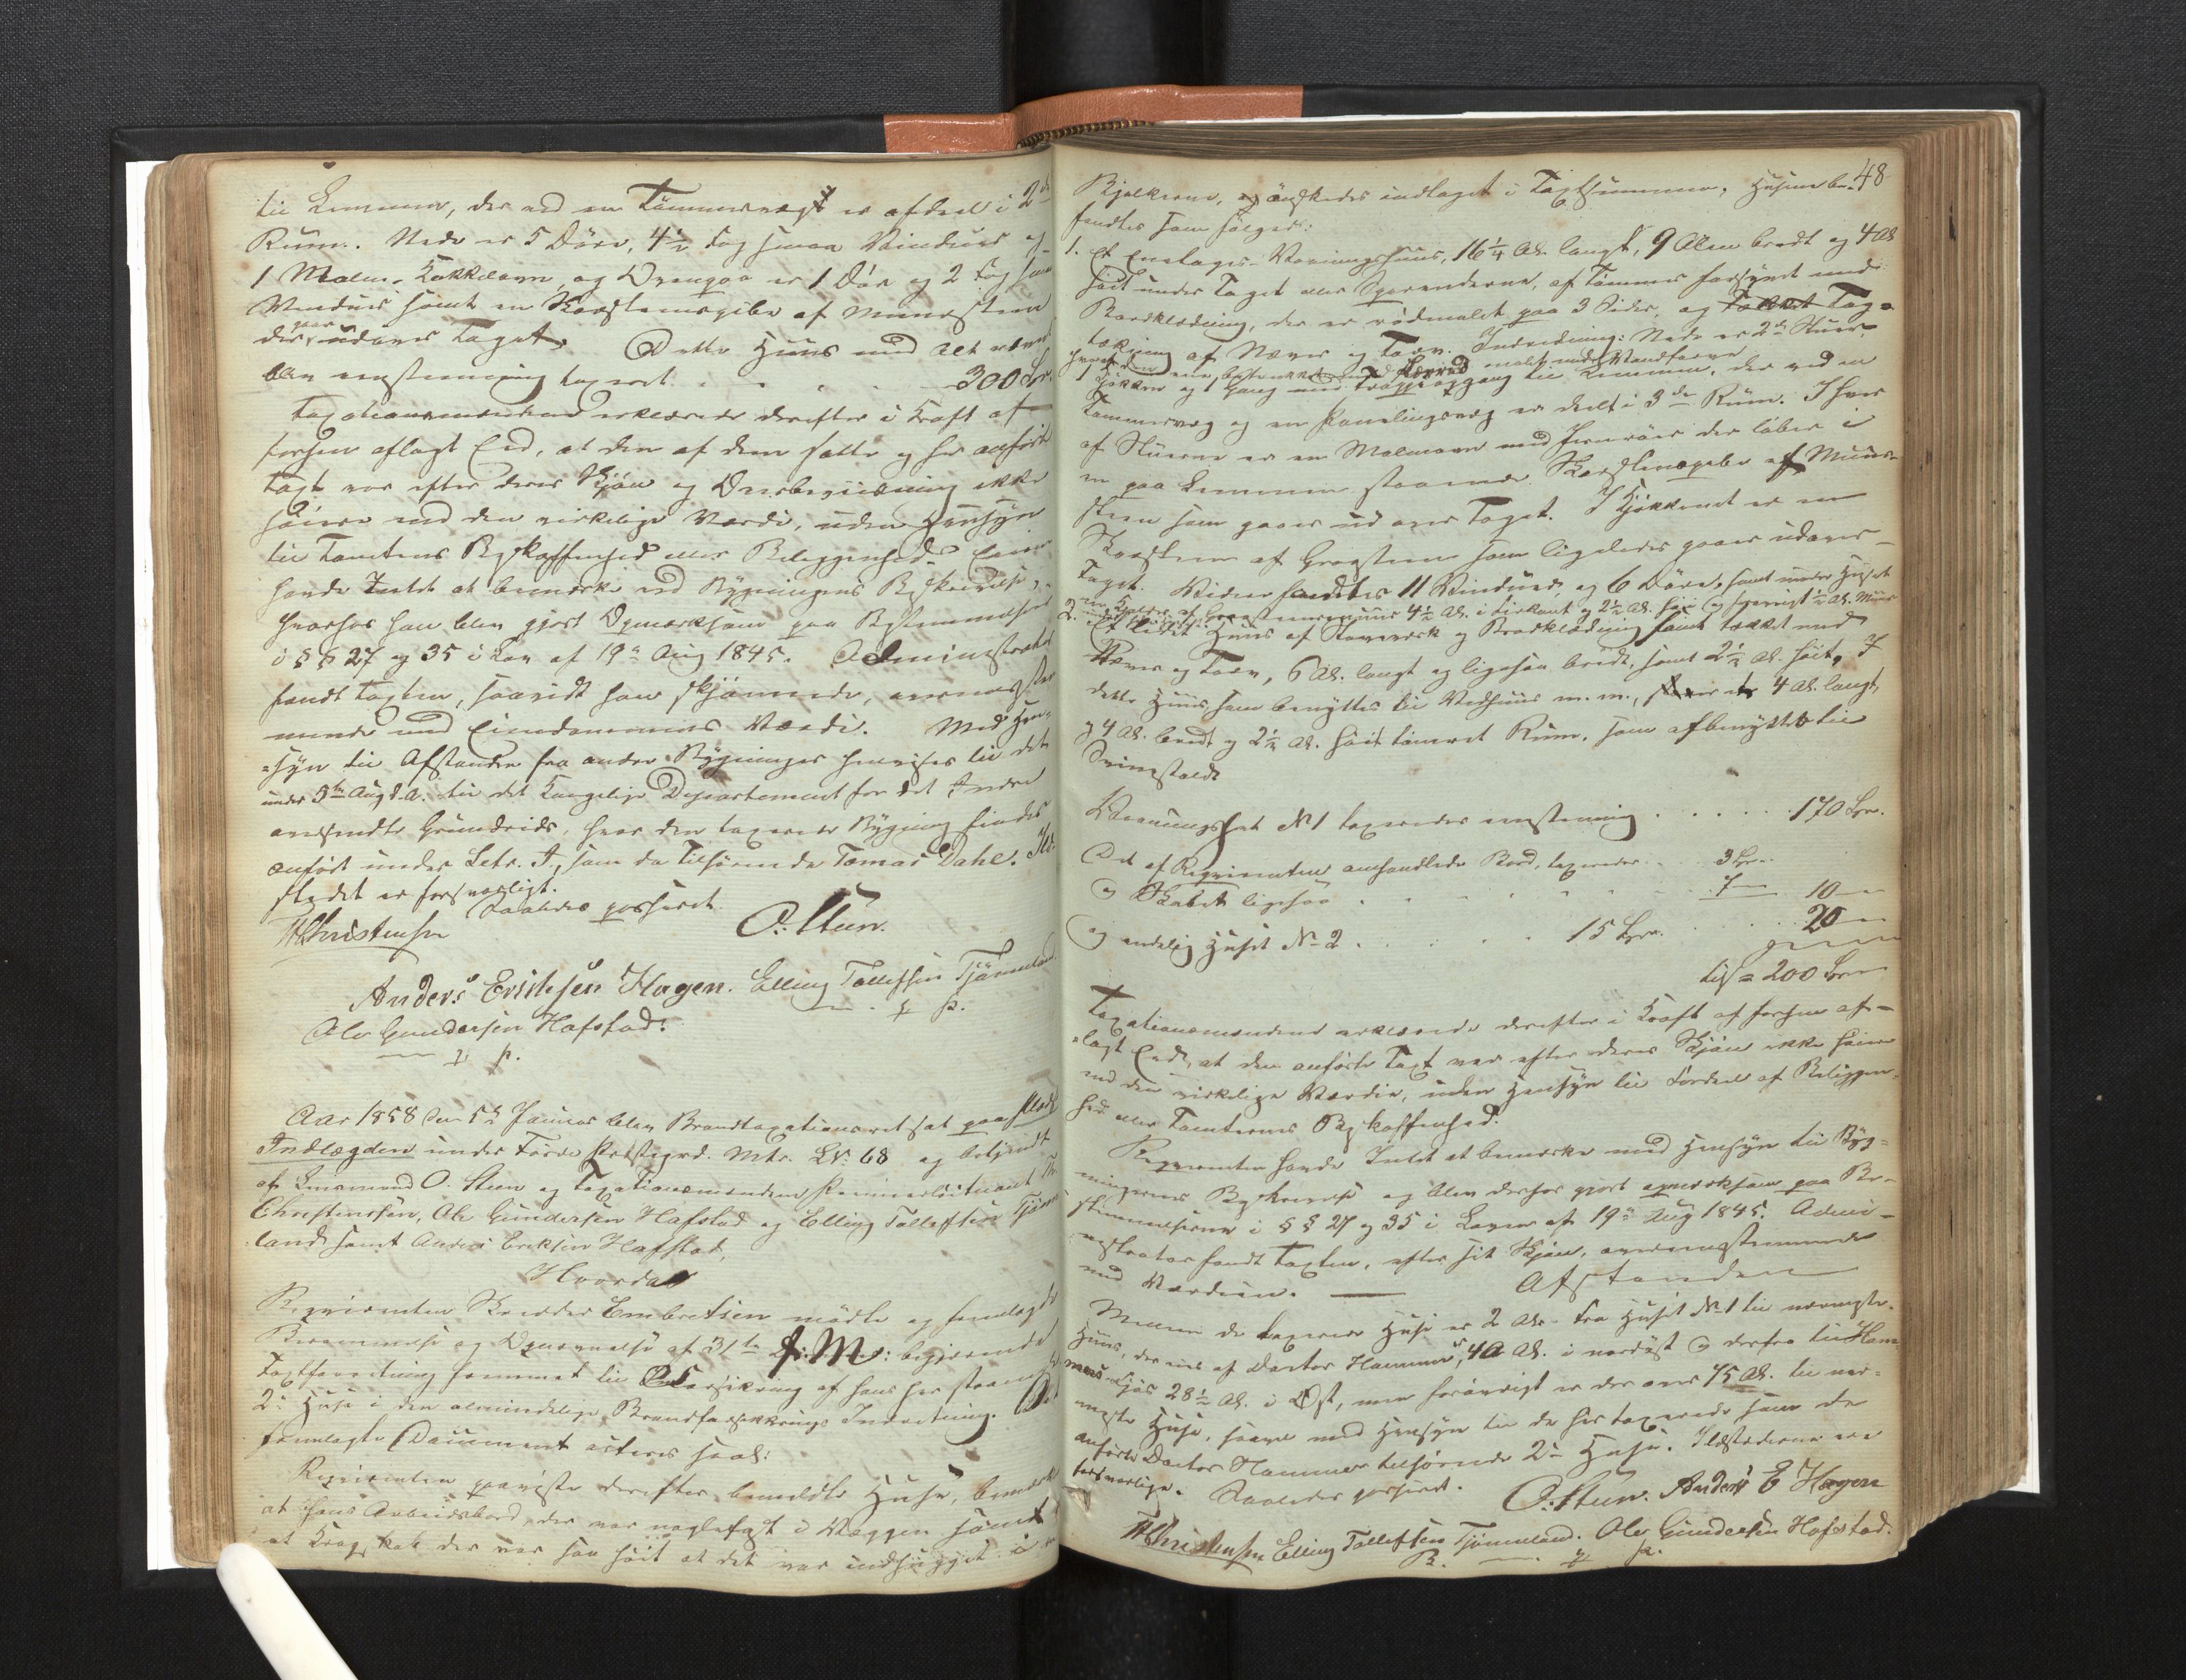 til Lemmen, der ved en Tömmervæg er afdeel i 2de
Rum. Nede er 5 Döre, 4 1/2 Fag smaa Vinduer og
1 Malm-Kakkelovn, og Ovenpaa er 1 Dör og 2 Fag smaa
Vinduer samt en Skorsteenspibe af Muursteen
der gaar udover Taget. Dette Huus med Alt
blev eenstemmig taxeret . . . . 300 Spd.
Taxationsmændene erklærede derefter i Kraft af
forhen aflagt Eed, at den af dem satte og her anförte
Taxt var efter deres Skjön og Overbeviisning ikke
höiere end den virkelige Værdi, uden Hensyn
til Tomtens Beskaffenhed eller Beliggenhed. Eieren
havde Intet at bemærke ved Bygningens Beskrivelse,
hvorhos han blev gjort Opmærksom paa Bestemmelserne
i §§ 27 og 35 i Lov af 19de Aug 1845. Administrator
fandt Taxten, saavidt han skjönnede, overensstem
mende med Eiendommens Værdi. Med Hen-
=syn til Afstanden fra andre Bygninger henvises til det
under 5te Aug d.A. til det Kongelige Departement for det Indre
indsendte Grundrids, hvor den taxerede Bygning findes
anfört under Letr. A, som da tilhörende Tomas Dahl. Ild-
stedet er forsvarligt.
Saaledes passeret.
Christensen O. Steen.
Anders Erichsen Hagen. Elling Tollefsen Tjömeland
Ole Gundersen Hafstad.
m. f. P.
Aar 1858 den 5te Januar blev Brandtaxationsret sat paa Pladsen
Indlægden under Förde Præstegrd. Mtr. Lr. 68 og betjent
af Lensmand O. Steen og Taxationsmændene Premierlöitnant
Christensen, Ole Gundersen Hafstad og Elling Tollefsen Tjöme
land samt Anders Eriksen Hafstad.
Hvorda
Reqvirenten Skræder Embretsen mödte og fremlagde
Berammelse og Opnævnelse af 31te : begjærende
Taxtforretning fremmet til Forsikring af hans her staaende
2de Huse i den almindelige Brandforsikkrings Indretning. Det
fremlagte Document acteres saal:
Reqvirenten paaviste derefter bemeldte Huse, bemærkede
at hans Arbeidsbord, der var naglefast i Væggen samt
at Skab der var saa höit at det var indhugget i
48
Bjelkerne, og önskedes indtaget i Taxtsummen, Husene be-
fandtes som fölger:
1. Et Eenetages-Vaaningshuus, 16 1/4 Al. langt, 9 Alen bredt og 4 Al
höit under Taget eller Sperrenderne, af Tömmer forsynet med
Bordklædning, der er rödmalet paa 3 Sider, og Tag-
tækning af Næver og Torv. Indredning: Nede er 2de Stuer
hvoraf den ene betrukket med Lærred malet med Vandfarve
1 Kjökken og 1 Gang med Trappeopgang til Lemmen, der ved en
Tömmervæg og en Panelingsvæg er deelt i 3de Rum. I hver
af Stuerne er en Malmovn med Jernrör der löber i
en paa Lemmen staaende Skorsteenspibe af Muur-
steen som gaaer ud over Taget. I Kjökkenet er en
Skorsteen af Graasteen som ligeledes gaaer udover
Taget. Videre fandtes 11 Vinduer, og 6 Döre, samt under Huset
en Kjelder af Graasteensmuur 4 1/2 Al. i Firkant og 2 1/2 Al. höi og forövrigt 1/2 Al. Muur
2. Et lidet Huus af Staververk og Bordklædning samt tækket med
Næver og Torv, 6 Al. langt og ligesaa bredt, samt 2 1/2 Al. höit. I
dette Huus som benyttes til Vedhuus m.m., er 4 Al. langt,
og 4 Al. bredt og 2 1/2 Al. höit tömret Rum, som afbenyttes til
Sviinestald
Vaaningshuset No 1 taxeredes eenstemmig . . . . . 170 Spd.
Det af Reqvirenten omhandlede Bord, taxeredes . . 3 Spd.
og Skabet ligesaa . . . . . . 7 — 10 —
og endelig Huset No 2 . . . . . 15 Spd. . . . 20 —
tils = 200 Spd
Taxationsmændene erklærede derefter i Kraft af forhen af-
=lagt Eed, at den anförte Taxt var efter deres Skjön ikke höiere
end den virkelige Værdie, uden Hensyn til Fordeel af Beliggen-
hed eller Tomternes Beskaffenhed.
Reqvirenten havde Intet at bemærke med Hensyn til Byg-
ningernes Beskrivelse og blev derhos gjort opmærksom paa Be-
stemmelserne i §§ 27 og 35 i Loven af 19de Aug 1845. Admi-
nistrator fandt Taxten, efter sit Skjön, overensstemmende
med Værdien. — Afstanden
Mellem de taxerede Huse er 2 Al. Fra Huset No 1 til nærmeste
Huus, der eies af Doctor Hammer, 40 Al. i nordöst og derfra til Ham-
mers Fjös 28 1/2 Al. i Öst, men forövrigt er der over 75 Al. til nær-
meste Huse, saavel med Hensyn til de her taxerede som de
anförte Doctor Hammer tilhörende 2de Huse. Ildstederne ere
forsvarlige. Saaledes passeret. O. Steen. Anders E Hagen
Christensen Elling Tollefsen Tjömeland. Ole Gundersen Hafstad.